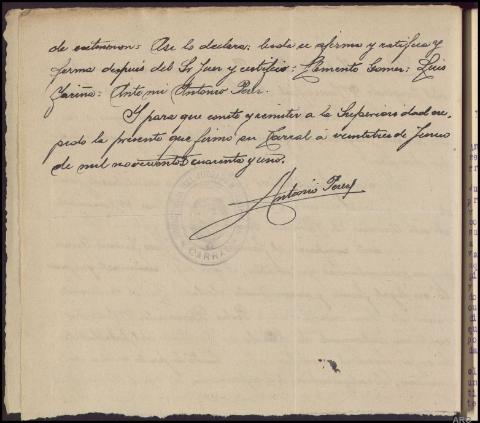 de extremon: Asi lo declara; leida se afirma y ratifica y
firma despues del Sr Juez y certifico: Clemente Gomez: Luis
Fariña: Ante mi Antonio Perez.
Y para que conste y remitir a la Superioridad ex-
pido la presente que firmo en Carral á veintitres de Junio
de mil novecientos cuarenta y uno.
Antonio Perez
CARRAL